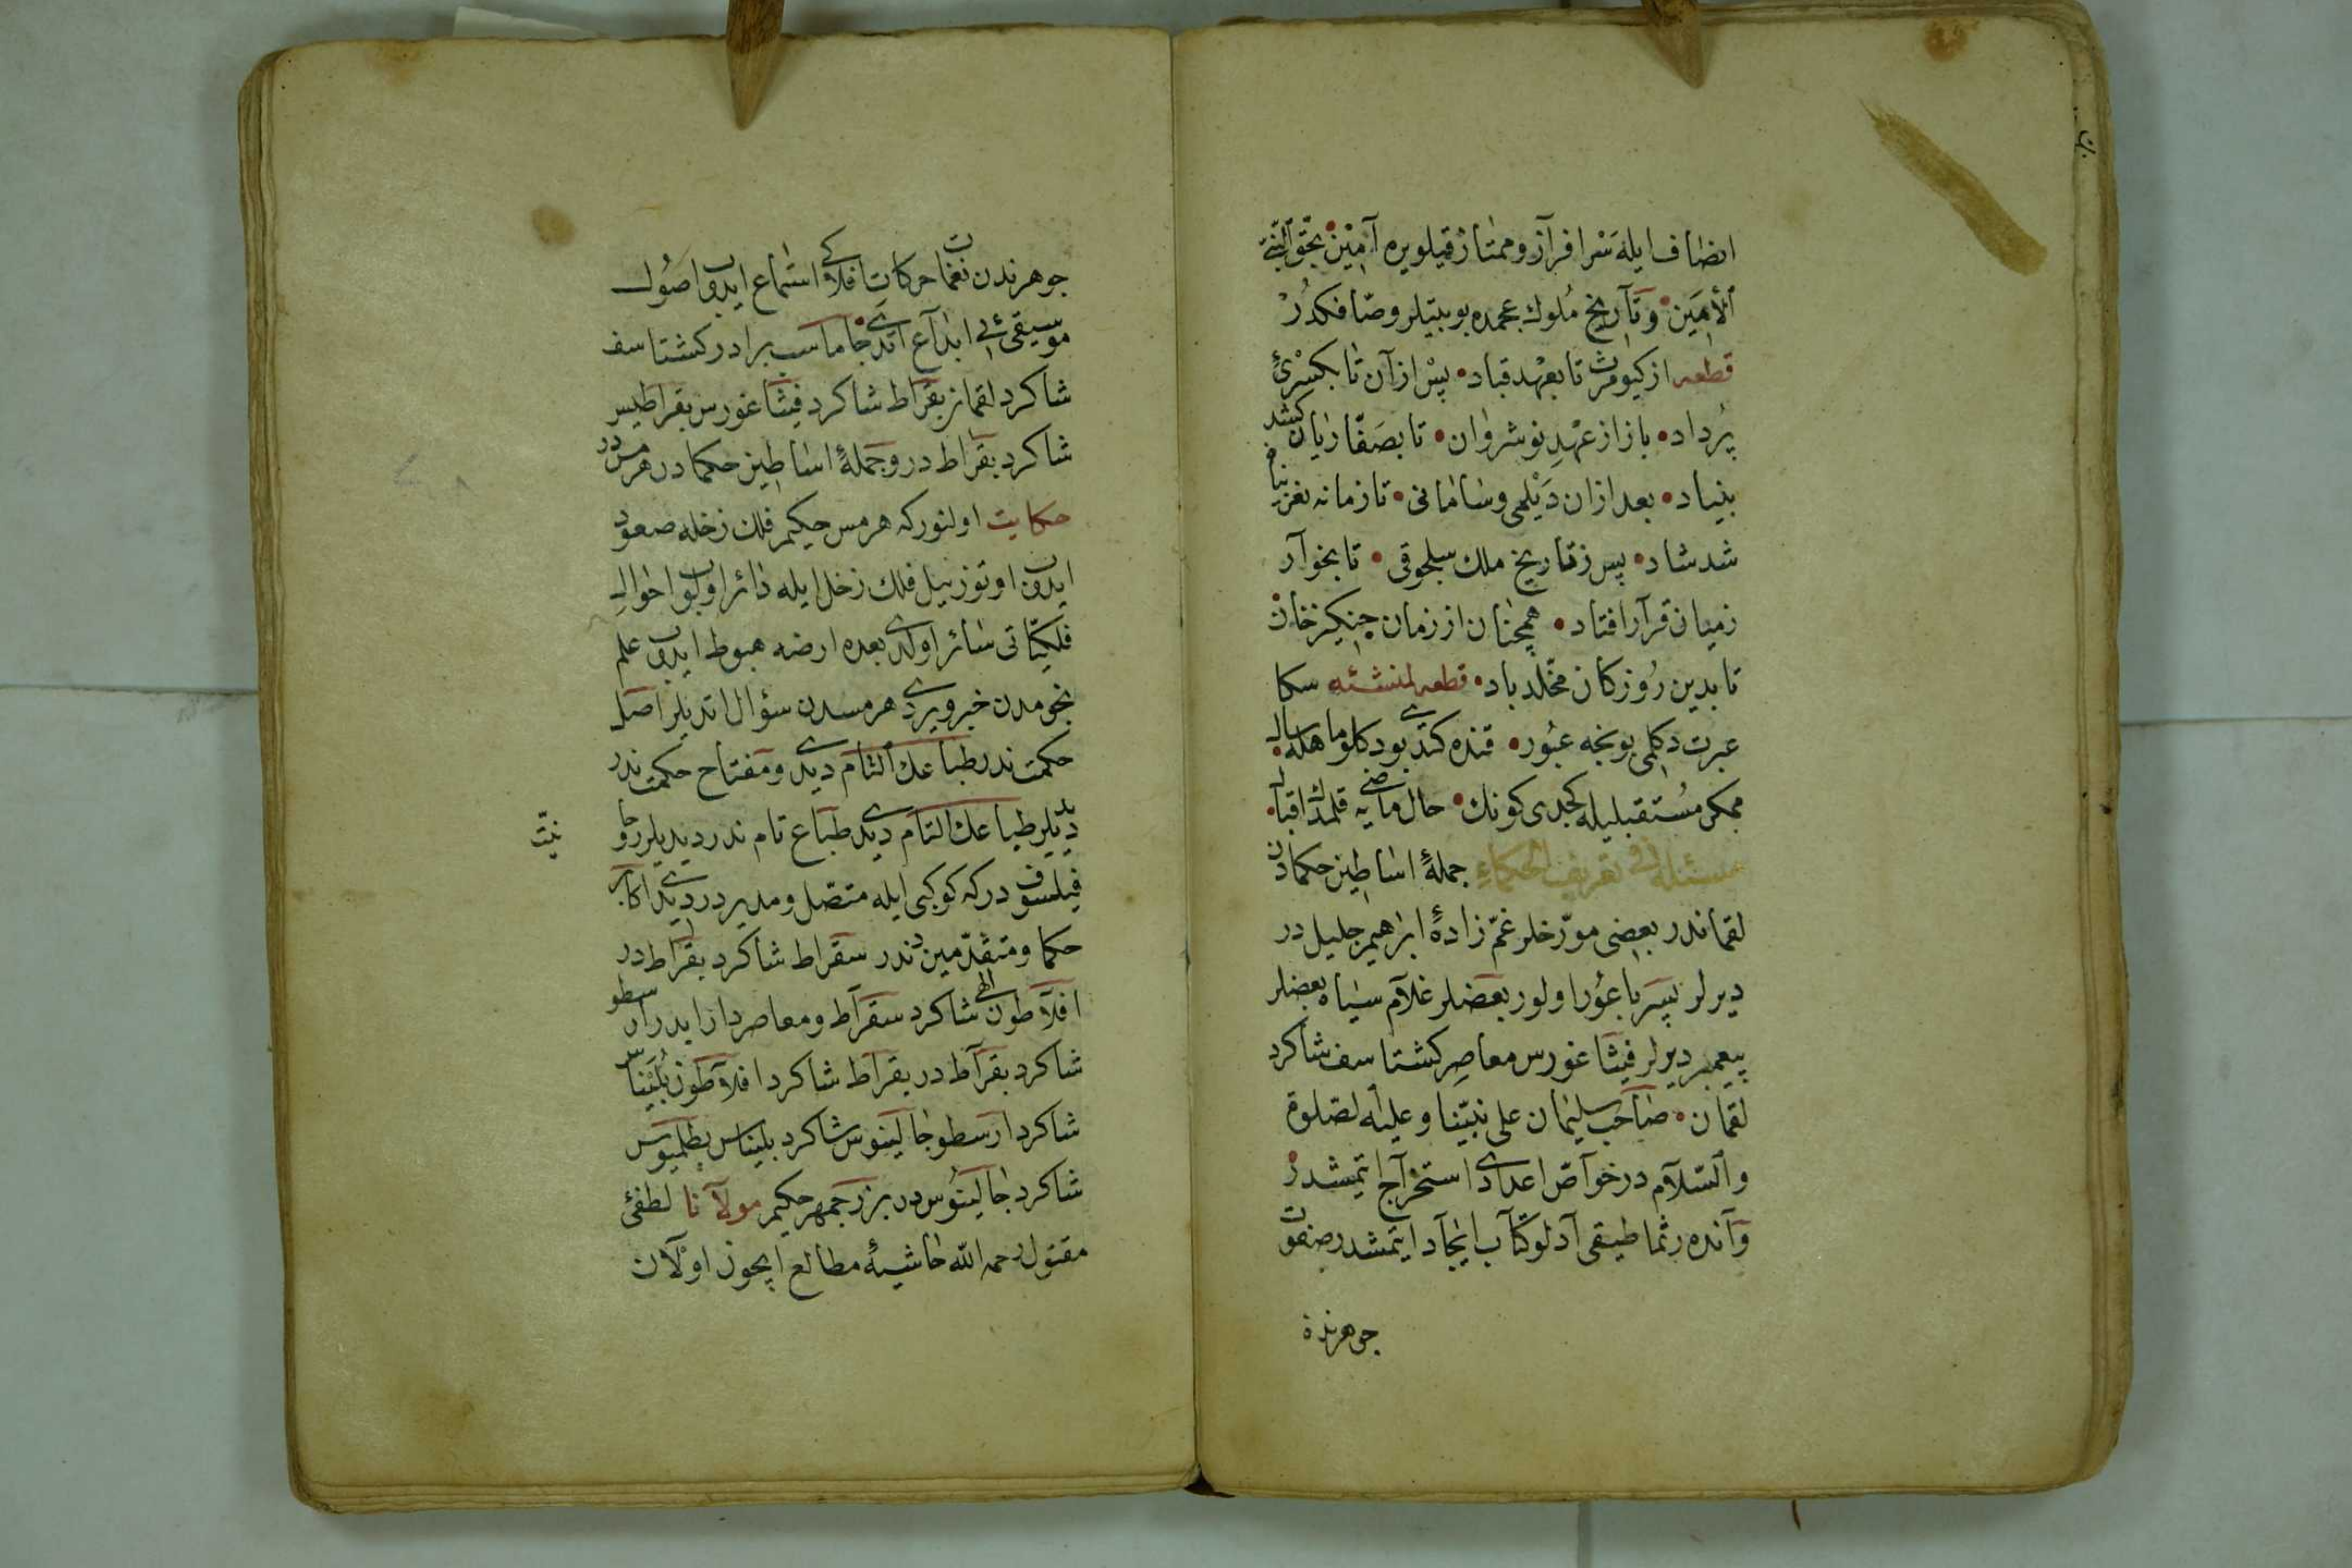 انصاف ايله سرافراز وممتاز قيلويره آمين بحق النبى
الأمين وتآريخ ملوك عجمده بو بيتلر وصافكدر
قطعه از كيومرث تا بعهد قباد پس از آن تا بكسرئ
پرداد باز از عهد نوشروان تا بصفاريان كشد
بنياد بعد ازان ديلمى وسامانى تا زمانه بغزنيان
شد شاد پس ز تاريخ ملك سلجوقى تا بخوار
زميان قرار افتاد همچنان از زمان چنكيز خان
تا بدين روز كان مخلد باد قطعه لمنشئه سكا
عبرت دكلمى بونجه عبور قنده كتدى بودكلو ماه سال
ممكن مستقبليله كجدى كونك حال ماضى يه قلمدى اقبال
مسئله فى تعريف الحكماء جملۀ اساطين حكمادن
لقماندر بعضى مورخلر عم زادۀ ابراهيم جليل در
ديرلر پسر باعور اولور بعضلر غلام سياه بعضلر
پيغمبر ديرلر فيثاغورس معاصر كشتاسف شاكرد
لقمان صاحب سليمان على نبينا وعليه لصلوة
والسلام در خواص اعدادى استخراج ايتمشدر
وآنده رثماطيقى آدلو كتاب ايجاد ايتمشدر صفوت
جوهرندن
جوهرندن نغمات حركات افلاكى استماع ايدوب اصول
موسيقى ئى ابداع اتدى جاماسب برادر كشتاسف
شاكرد لقمان بقراط شاكرد فيثاغورس بقراطيس
شاكرد بقراط در وجملۀ اساطين حكمادر هرمس در
حكايت اولنور كه هرمس حكيم فلك زحله صعود
ايدوب اوتوز ييل فلك زحل ايله دائر اولوب احوال
فلكياتى سائر اولدى بعده ارضه هبوط ايدوب علم
نجومدن خبر ويردى هرمسدن سؤال اتديلر اصل
حكمت ندر طباعك التام ديدى ومفتاح حكمت ندر
ديديلر طباعك التام ديدى طباع تام ندر ديديلر روحا
نيت
فيلسوف دركه كوكبى ايله متصل ومدبر در ديدى اكابر
حكما ومتقدمين دندر سقراط شاكرد بقراط در
افلاطون الهى شاكرد سقراط ومعاصر دارا يدر ارسطو
شاكرد بقراط در بقراط شاكرد افلاطون بليناس
شاكرد ارسطو جالينوس شاكرد بليناس بطلميوس
شاكرد جالينوس در بزرجمهر حكيم مولانا لطفئ
مقتول رحمه الله حاشيۀ مطالع ايچون اولان